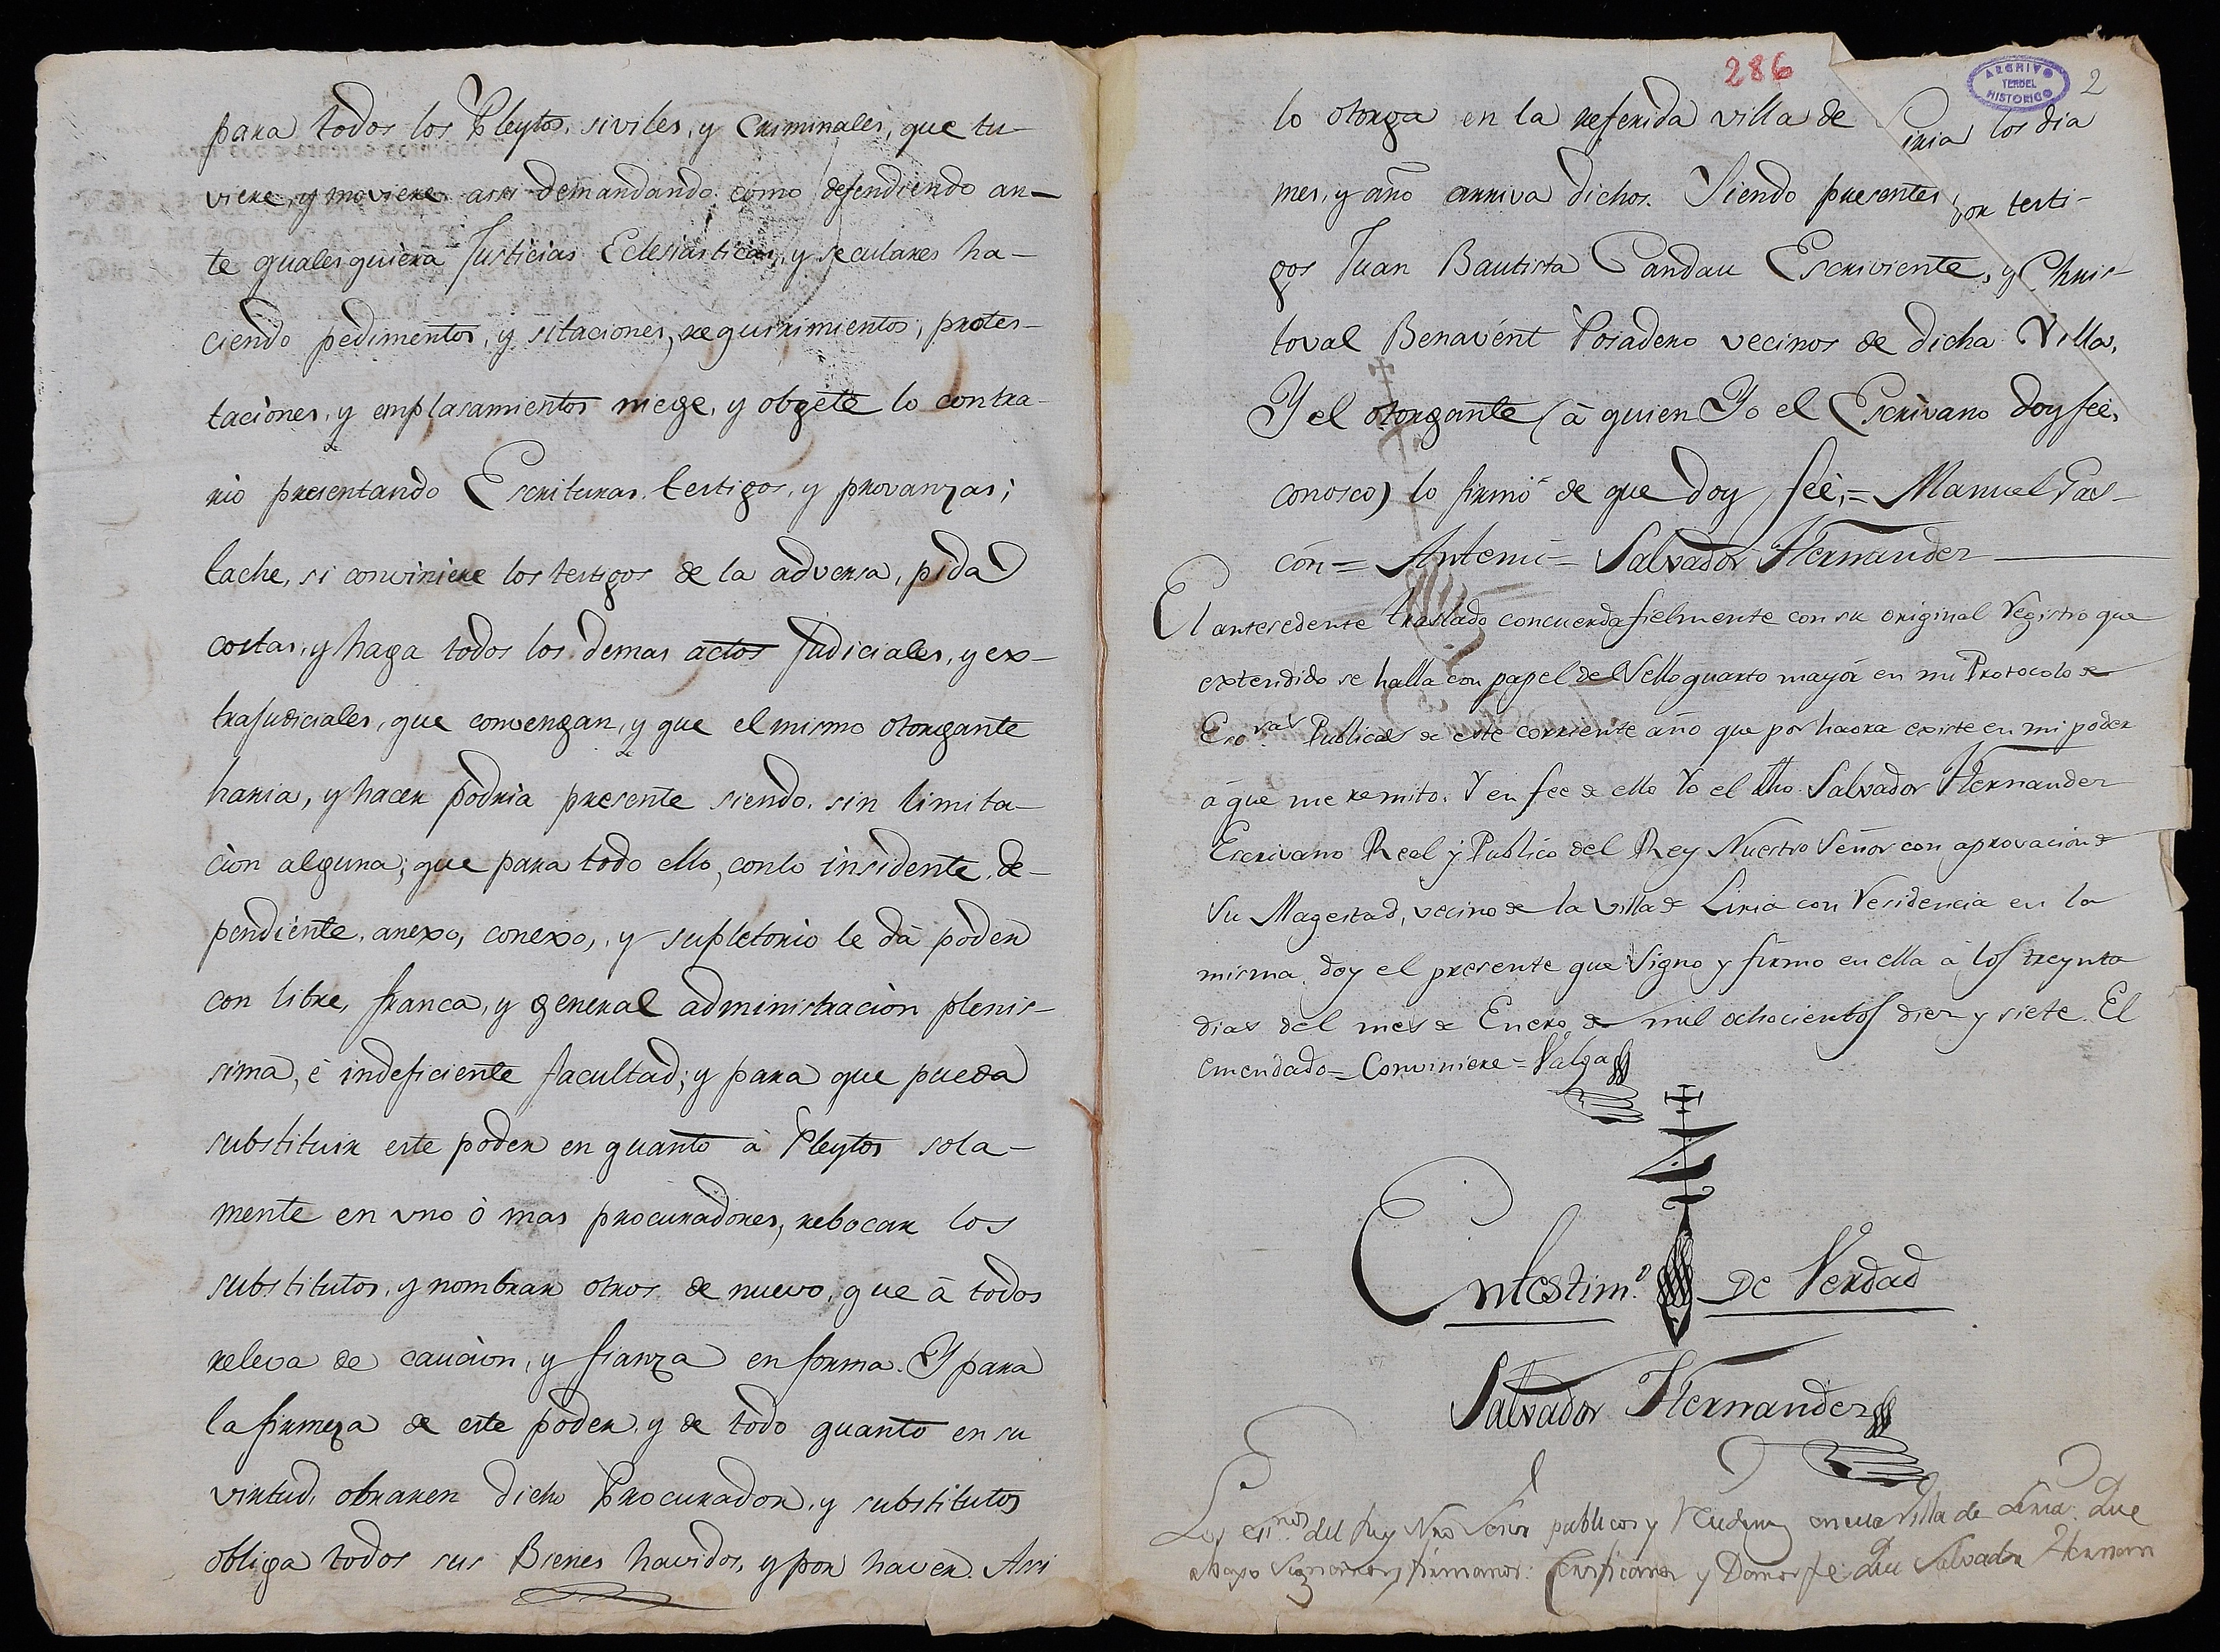 para todos los Pleytos, siviles, y Criminales, que tu-
viere, y moviere, assi demandando como defendiendo an-
te qualesquiera Justicias Eclesiasticas, y seculares ha-
ciendo pedimentos, y sitaciones, requirimientos, protes-
taciones, y emplasamientos niege, y obgete lo contra-
rio presentando Escrituras, testigos, y provanzas;
tache, si conviniere los testigos de la adversa, pida
costas, y haga todos los demas actos Judiciales, y ex-
trajudiciales, que convengan, y que el mismo otorgante
haria, y hacer podria presente siendo, sin limita-
cion alguna; que para todo ello, con lo insidente, de-
pendiente, anexo, conexo, y supletorio le dà poder
con libre, franca, y general administracion plenis-
sima, è indeficiente facultad; y para que pueda
substituir este poder en quanto à Pleytos sola-
mente en uno ò mas procuradores, rebocar los
substitutos, y nombrar otros de nuevo, que à todos
releva de caucion, y fianza en forma. Y para
la firmeza de este poder, y de todo quanto en su
virtud, obraren dicho Procurador, y substitutos
obliga todos sus Bienes havidos, y por haver. Assi
286
ARCHIVO
TERDEL
HISTORICO
2
lo otorga en la referida villa de Liria los dia
mes, y año arriva dichos. Siendo presentes por testi-
gos Juan Bautista Candau Escriviente, y Chris-
toval Benavént Posadero vecinos de dicha Villa.
Y el otorgante (à quien Yo el Escrivano doy feé,
conosco) lo firmó de que doy feé,= Manuel Gas-
cón = Antemi = Salvador Hernandez
El antesedente traslado concuerda fielmente con su original registro que
extendido se halla con papel del Sello quarto mayór en mi Protocolo de
Escras Publicas de este corriente año que por haora existe en mi poder
à que me remito. Y en fee de ello Yo el dho Salvador Hernandez
Escrivano Real y Publico del Rey Nuestro Señor con aprovacion de
Su Magestad, vecino de la Villa de Liria con residencia en la
misma, doy el presente que signo y firmo en ella à los treynta
dias del mes de Enero de mil ochocientos diez y siete. El
emendado = Conviniere = Valga
En testimo. De Verdad
Salvador Hernandez
Los essnos del Rey Nro Señor publicos y en esta Villa de Liria. Que
abajo Signamos y firmamos: Certificamos y Damos fe: Que Salvador Hernan